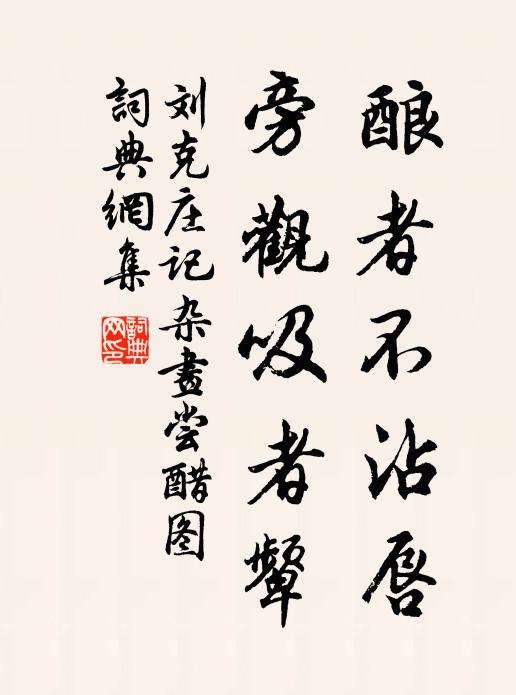 酿者不沾唇
旁觀吸者颦
刘克庄记杂畫尝醋图
詞典網集
詞典网印